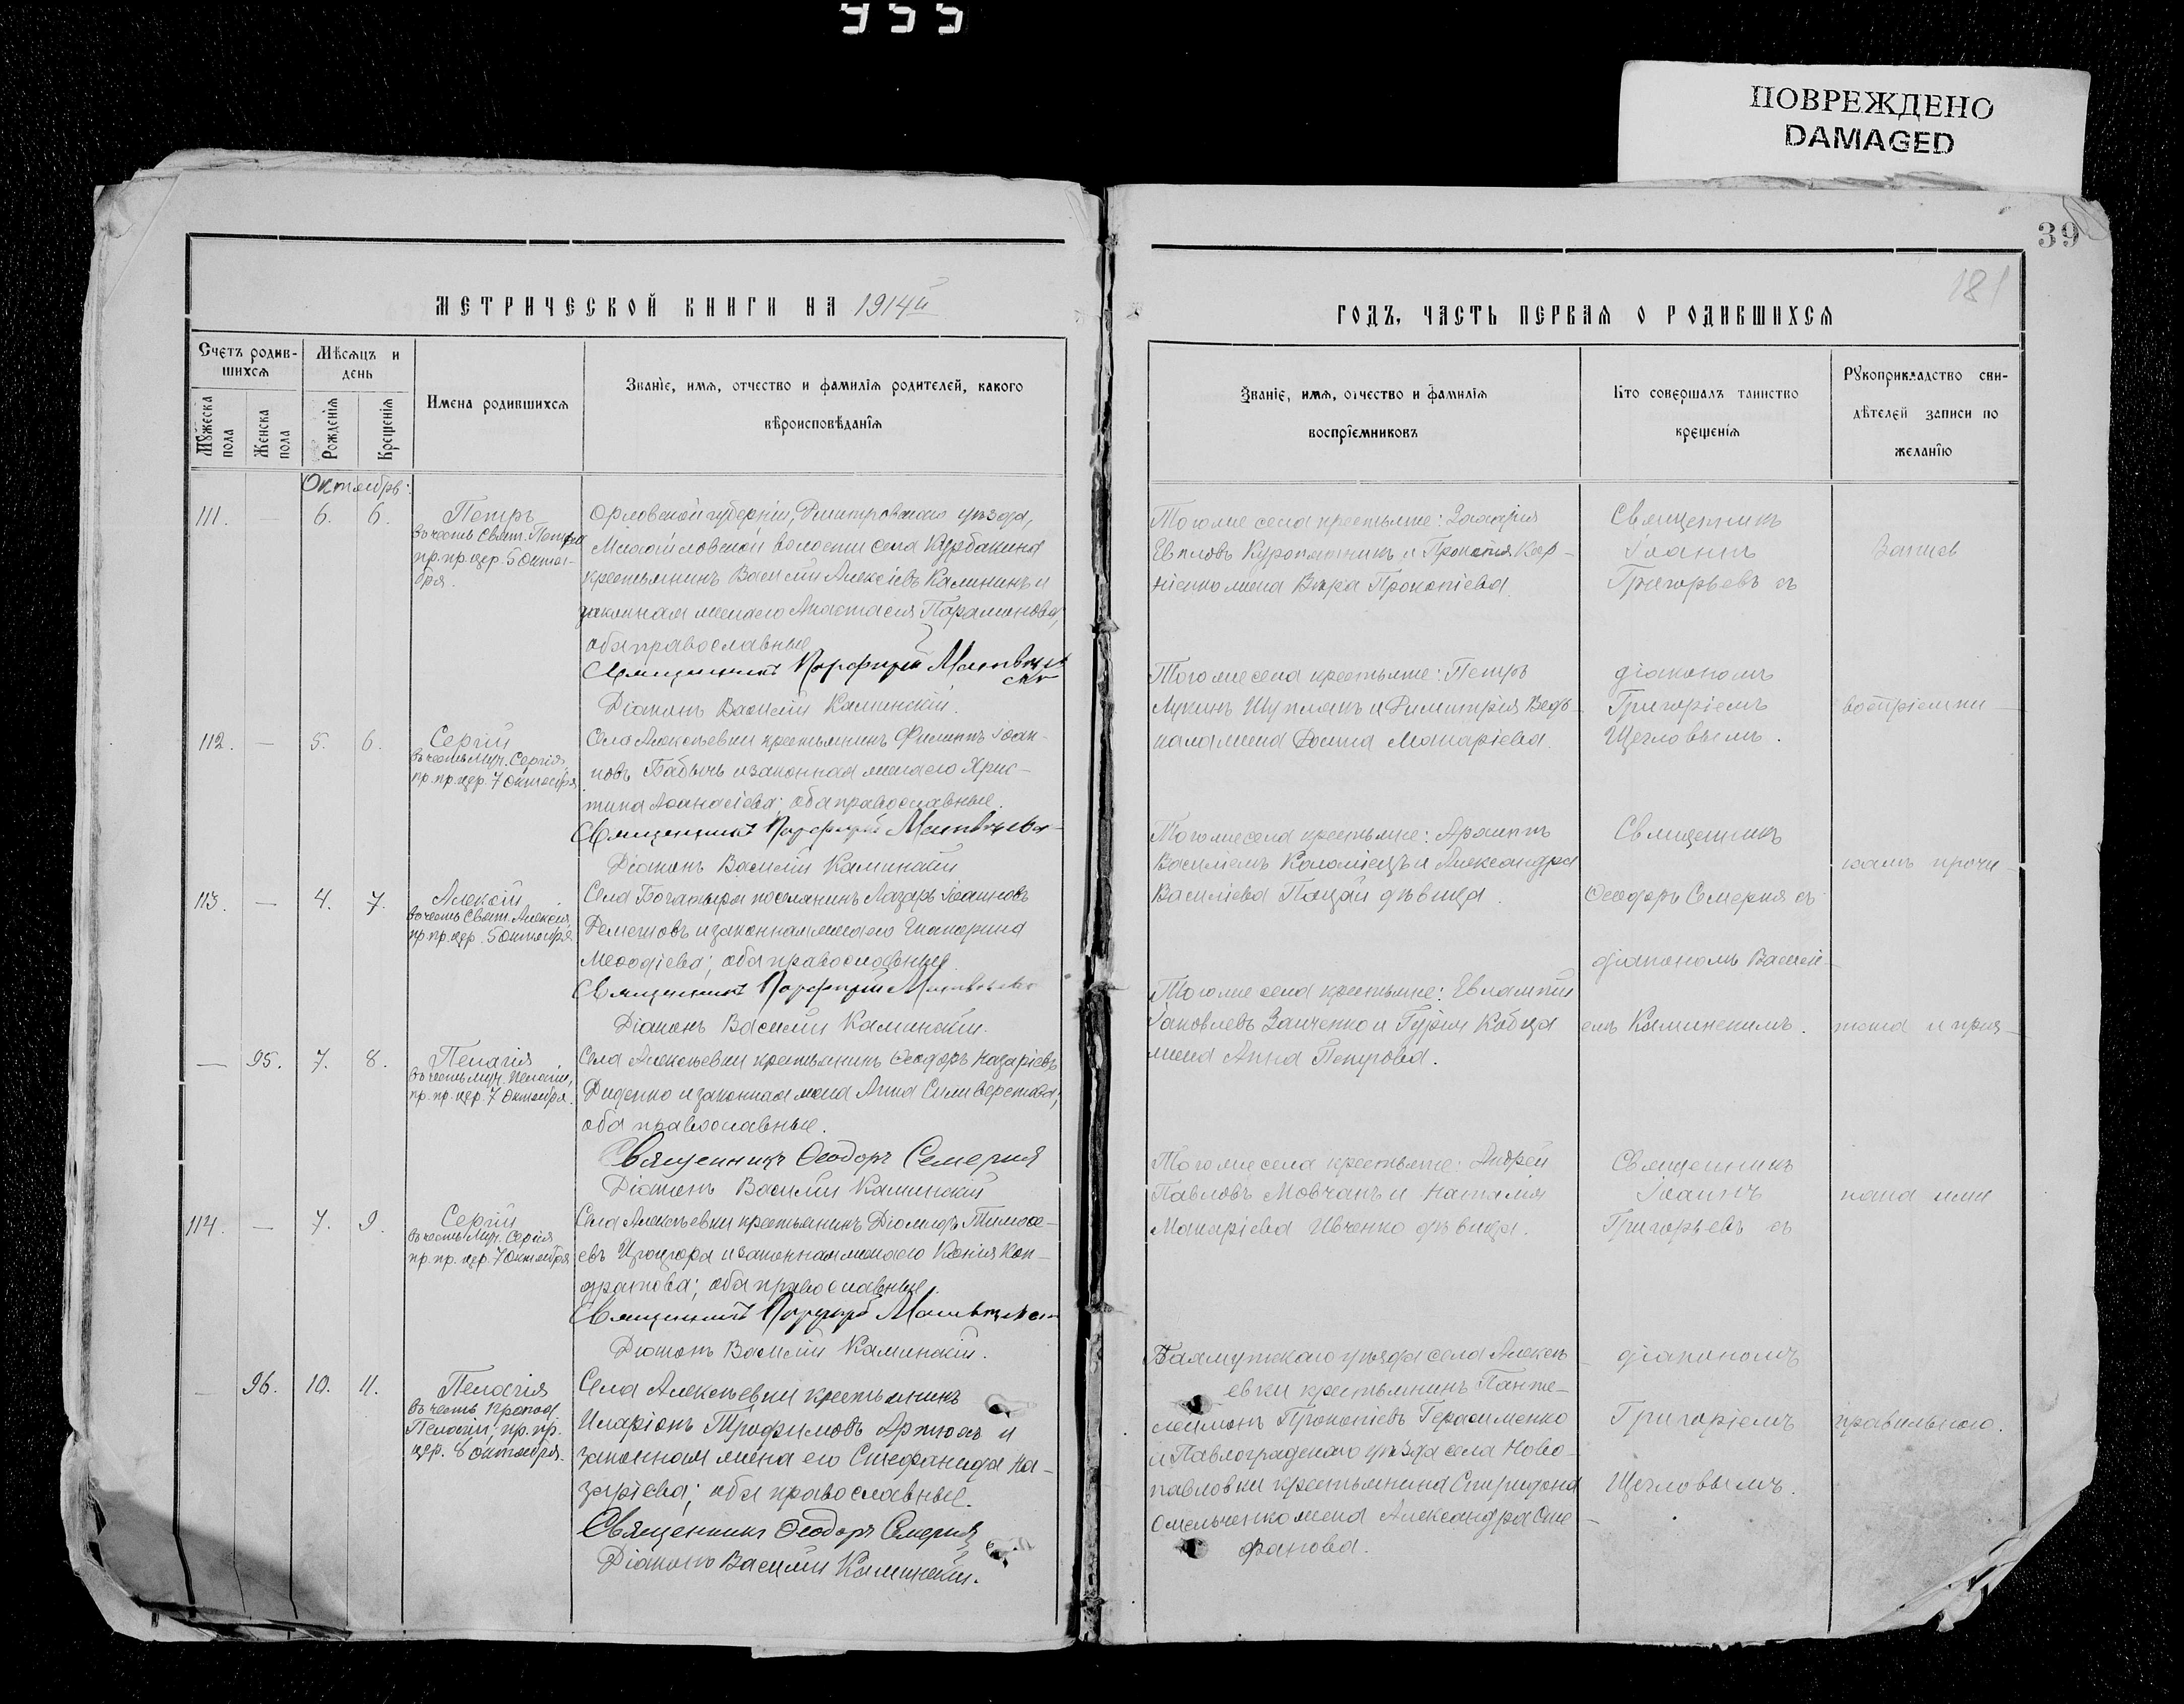 955
ПОВРЕЖДЕНО
DAMAGED
39
181
МЕТРИЧЕСКОЙ КНИГИ НА 1914й
Счетъ родив-
шихся
Мѣсяцъ и
день
Мужеска
пола
Женска
пола
Рожденія
Крещенія
Имена родившихся
Званіе, имя, отчество и фамилія родителей, какого
вѣроисповѣданія
Октябрь:
111. — 6. 6.
Петръ
въ честь Свят. Петра
пр. пр. цер. 5 октя-
бря.
Орловской губерніи, Дмитровскаго уѣзда,
Михайловской волости села Курбакина
крестьянинъ Василій Алексіевъ Калининъ и
законная жена его Анастасія Парамонова,
оба православные
Священникъ Порфирій
Діаконъ Василій Каминскій.
112. — 5. 6.
Сергій
въ честь Муч. Сергія,
пр. пр. цер. 7 октября
Села Алексѣевки крестьянинъ Филиппъ Іоан-
новъ Бабычъ и законная жена его Хрис-
тина Аѳанасіева; оба православные.
Священникъ Порфирій
Діаконъ Василій Каминскій
113. — 4. 7.
Алексій
въ честь Свят. Алексія,
пр. пр. цер. 5 октября
Села Богатыря поселянинъ Лазарь Іоанновъ
и законная жена его Екатерина
Меѳодіева; оба православные.
Священникъ Порфирій
Діаконъ Василій Каминскій.
— 95. 7. 8.
Пелагія
въ честь муч. Пелагіи,
пр. пр. цер. 7 октября.
Села Алексѣевки крестьянинъ Ѳеодоръ Назаріевъ
Диденко и законная жена Анна Сильверстова;
оба православные.
Священникъ Ѳеодоръ Семерня
Діаконъ Василій Каминскій
114. — 7. 9.
Сергій
въ честь Муч. Сергія
пр. пр. цер. 7 октября
Села Алексѣевки крестьянинъ Діомидъ Тимоѳе-
евъ и законная жена его Ксенія Кон-
дратова; оба православные.
Священникъ Порфирій
Діаконъ Василій Каминскій.
— 96. 10. 11.
Пелагія
въ честь препод.
Пелагіи; пр. пр.
цер. 8 октября.
Села Алексѣевки крестьянинъ
Иларіонъ Трофимовъ и
законная жена его Стефанида На-
заріева; оба православные.
Священникъ Ѳеодоръ Семерня
Діаконъ Василій Каминскій.
ГОДЪ, ЧАСТЬ ПЕРВАЯ О РОДИВШИХСЯ
Званіе, имя, отчество и фамилія
воспріемниковъ
Кто совершалъ таинство
крещенія
Рукоприкладство сви-
дѣтелей записи по
желанію
Того же села крестьяне: Захарія
Евпловъ и Прокопія Кор-
ніенко жена Вѣра Прокопіева.
Священникъ
Іоаннъ
Григорьевъ съ
Того же села крестьяне: Петръ
Лукинъ Шуплякъ и Димитрія
жена Макаріева.
діакономъ
Григоріемъ
Щегловымъ.
воспріемни-
Того же села крестьяне:
Коломіецъ и Александра
Василіева дѣвица.
Священникъ
Ѳеодоръ Семерня съ
діакономъ Василі-
емъ Каминскимъ.
Того же села крестьяне: Евлампій
Іаковлевъ Заиченко и Гурія
жена Анна Петрова.
Того же села крестьяне: Андрей
Павловъ Мовчанъ и Наталія
Макаріева Ивченко дѣвица.
Священникъ
Іоаннъ
Григорьевъ съ
Бахмутскаго уѣзда села Алексѣ-
евки крестьянинъ Панте-
леимонъ Прокопіевъ Герасименко
и Павлоградскаго уѣзда села Ново-
павловки крестьянина Спиридона
Омельченко жена Александра Сте-
фанова.
діакономъ
Григоріемъ
Щегловымъ.